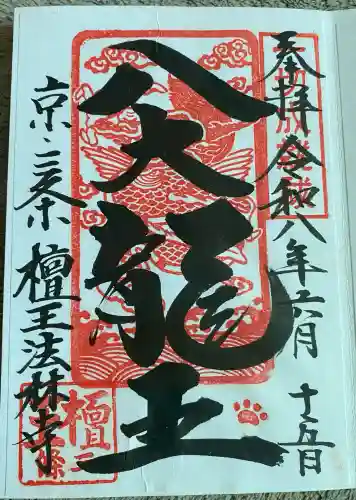 奉拝
令和八年六月
十五日
八大龍王
京・三条
檀王法林寺